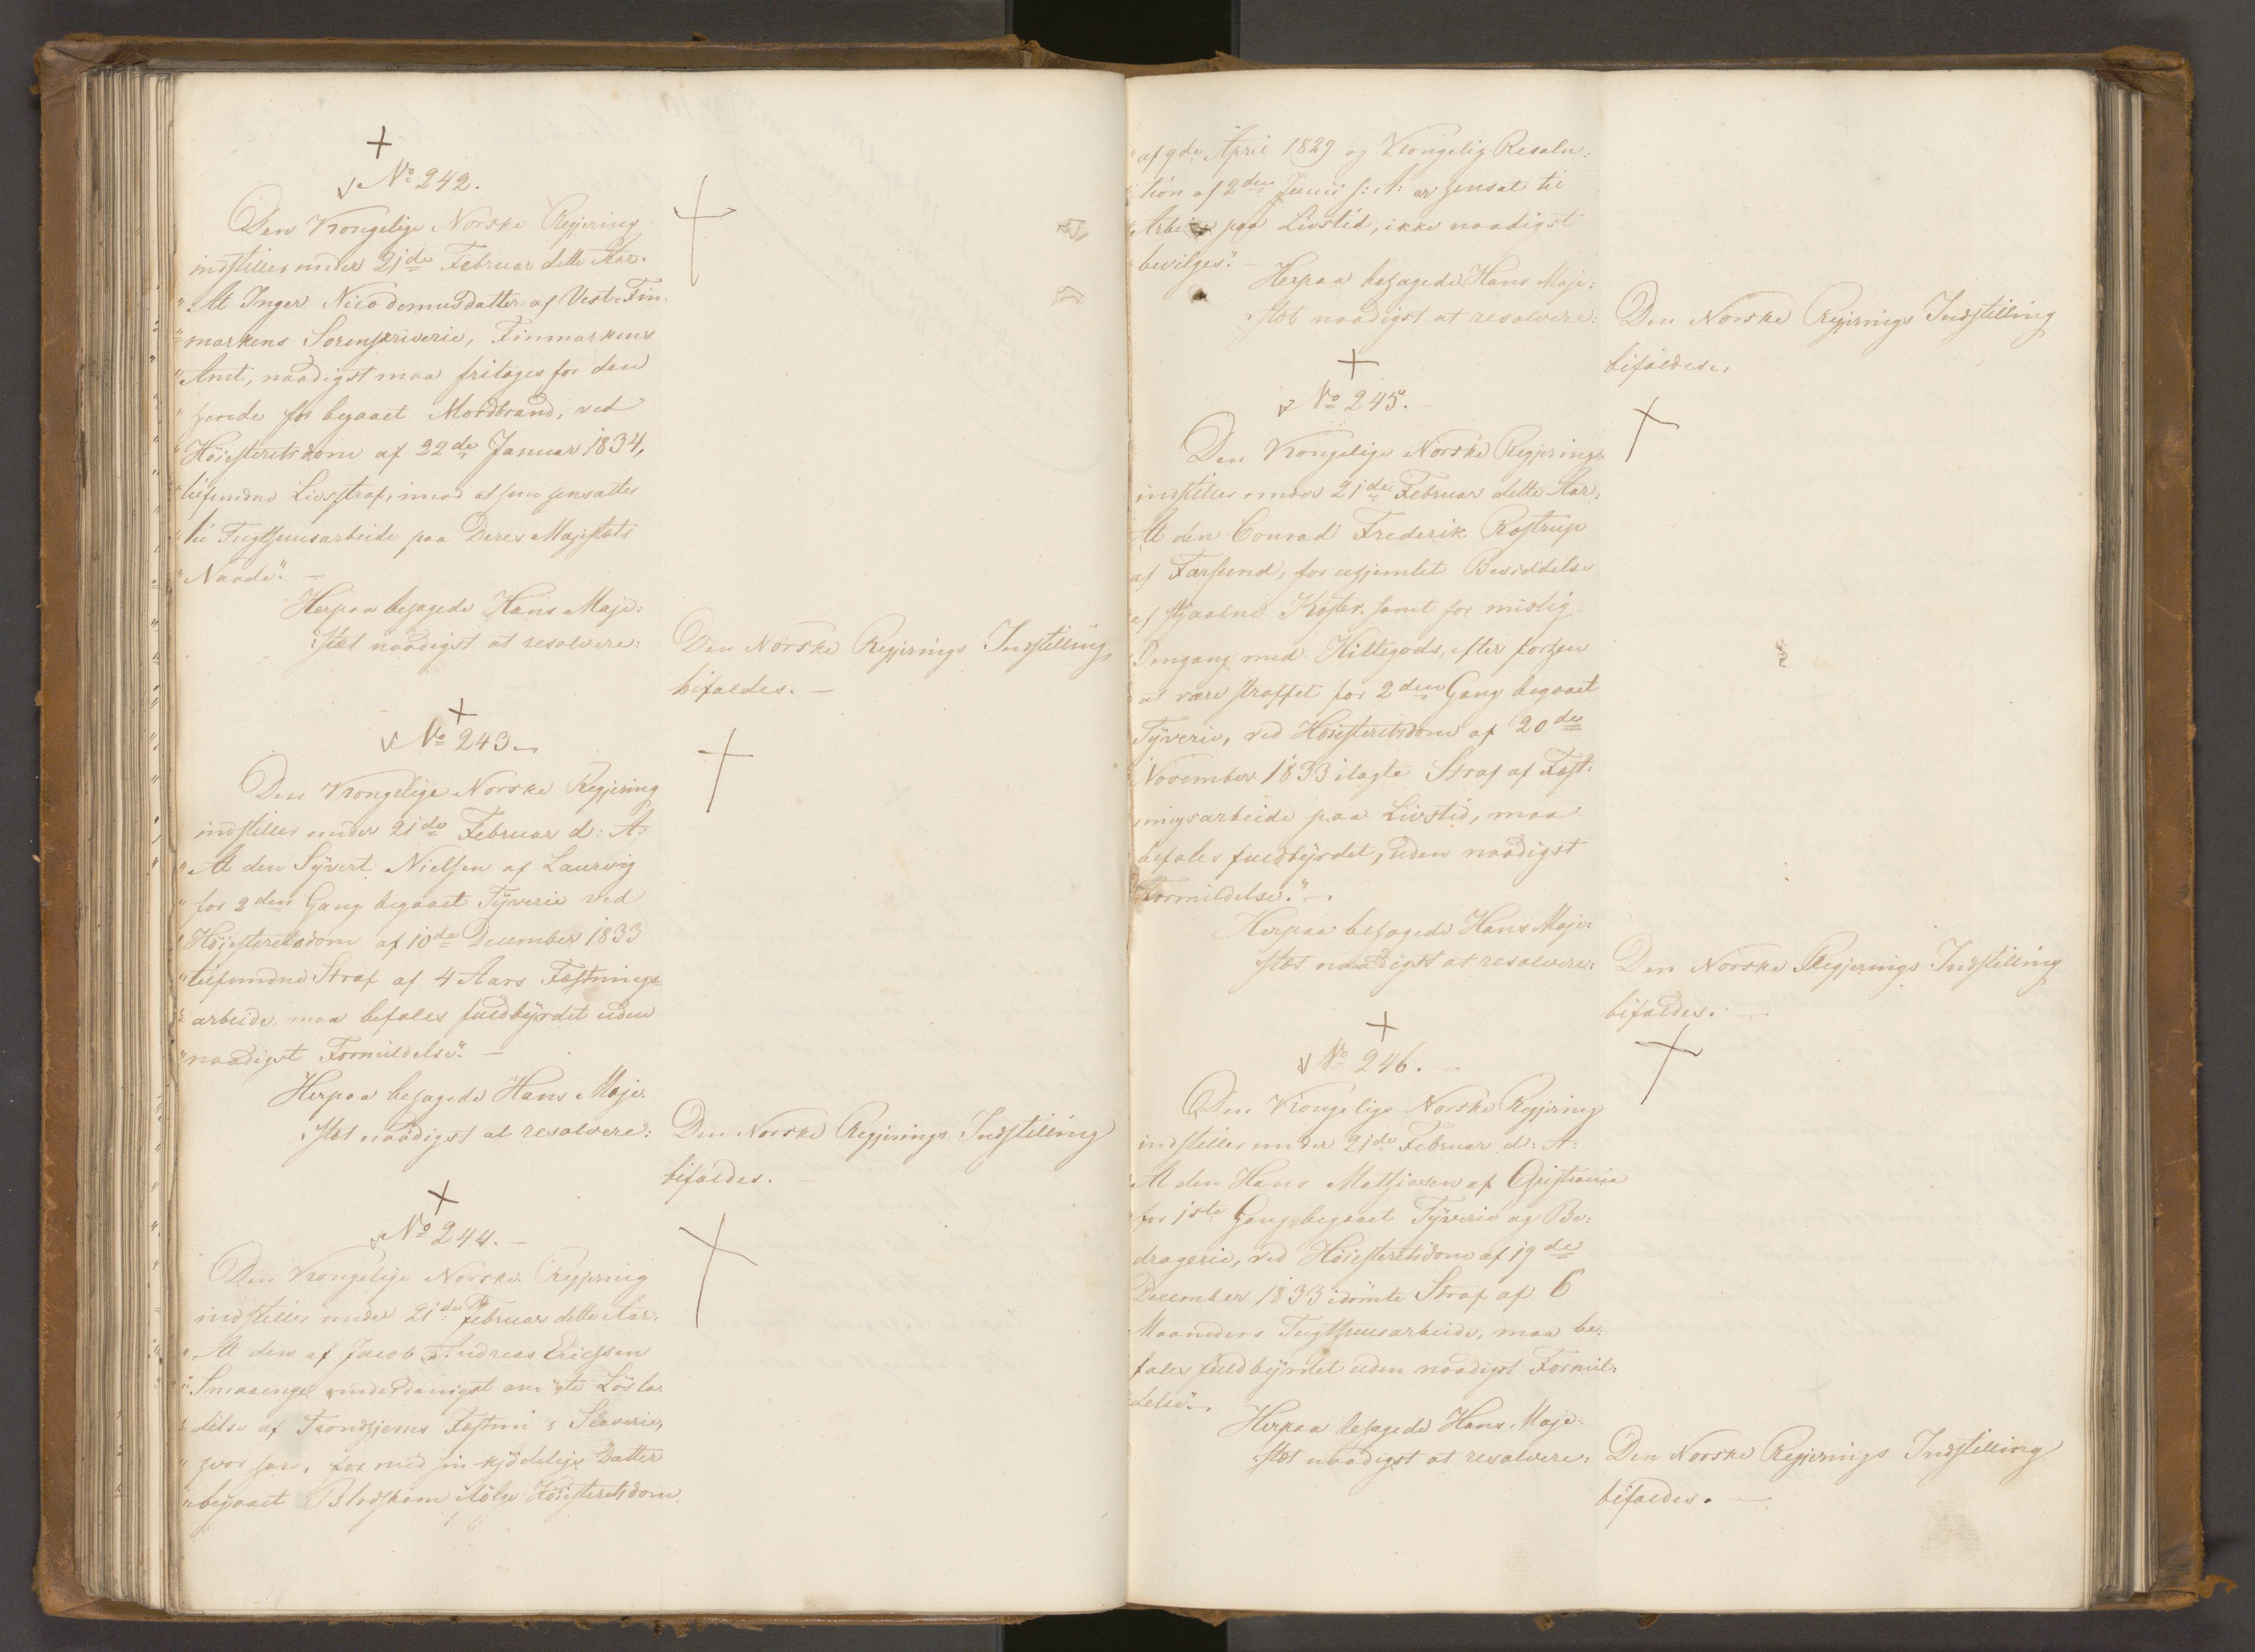 No 242.
Den Kongelige Norske Regjering
indstiller under 21de Februar dette Aar:
"At Inger Nicodemusdatter af Vest-Fin-
"markens Sorenskriverie, Finmarkens
"Amt, naadigst maa fritages for den
"hende for begaaet Mordbrand, ved
"Höiesteretsdom af 22de Januar 1834,
"tilfundne Livsstraf, imod at hun hensættes
"til Tugthuusarbeide paa Deres Majestæts
"Naade".
Herpaa behagede Hans Maje:
:stæt naadigst at resolvere:
Den Norske Regjerings Indstilling
bifaldes.
No 243.
Den Kongelige Norske Regjering
indstiller under 21de Februar d: A:
"At den Syvert Nielsen af Laurvig
"for 2den Gang begaaet Tyverie ved
"Höiesteretsdom af 10de December 1833
"tilfundne Straf af 4 Aars Fæstnings-
"arbeide, maa befales fuldbyrdet uden
"naadigst Formildelse".
Herpaa behagede Hans Maje:
:stæt naadigst at resolvere:
Den Norske Regjerings Indstilling
bifaldes.
No 244.
Den Kongelige Norske Regjering
indstiller under 21de Februar dette Aar:
"At den af Jacob Andreas Ericksen
"Smaaenget underdanigst ansögte Lösla-
"delse af Trondhjems Fæstnings Slaverie,
"hvor han, for med sin kjödelige Datter
"begaaet Blodskam ifölge Höiesteretsdom
"af 9de April 1829 og Kongelig Resolu-
"tion af 2den Junii s: A: er hensat til
"Arbeide paa Livstid, ikke naadigst
"bevilges".
Herpaa behagede Hans Maje:
:stæt naadigst at resolvere:
Den Norske Regjerings Indstilling
bifaldes.
No 245.
Den Kongelige Norske Regjering
indstiller under 21de Februar dette Aar:
At den Conrad Frederik Rostrup
af Farsund, for uhjemlet Besiddelse
af stjaalne Koster samt for mislig
Omgang med Hittegods, efter forhen
at være straffet for 2den Gang begaaet
Tyverie, ved Höiesteretsdom af 20de
November 1833 ilagte Straf af Fæst-
ningsarbeide paa Livstid, maa
befales fuldbyrdet, uden naadigst
Formildelse."
Herpaa behagede Hans Maje:
:stæt naadigst at resolvere:
Den Norske Regjerings Indstilling
bifaldes.
No 246.
Den Kongelige Norske Regjering
indstiller under 21de Februar d: A:
"At den Hans Mathiesen af Christiania
"for 1ste Gang begaaet Tyverie og Be-
dragerie, ved Höiesteretsdom af 19de
December 1833 idömte Straf af 6
Maaneders Tugthuusarbeide, maa be-
fales fuldbyrdet uden naadigst Formil-
delse".
Herpaa behagede Hans Maje:
:stæt naadigst at resolvere:
Den Norske Regjerings Indstilling
bifaldes.